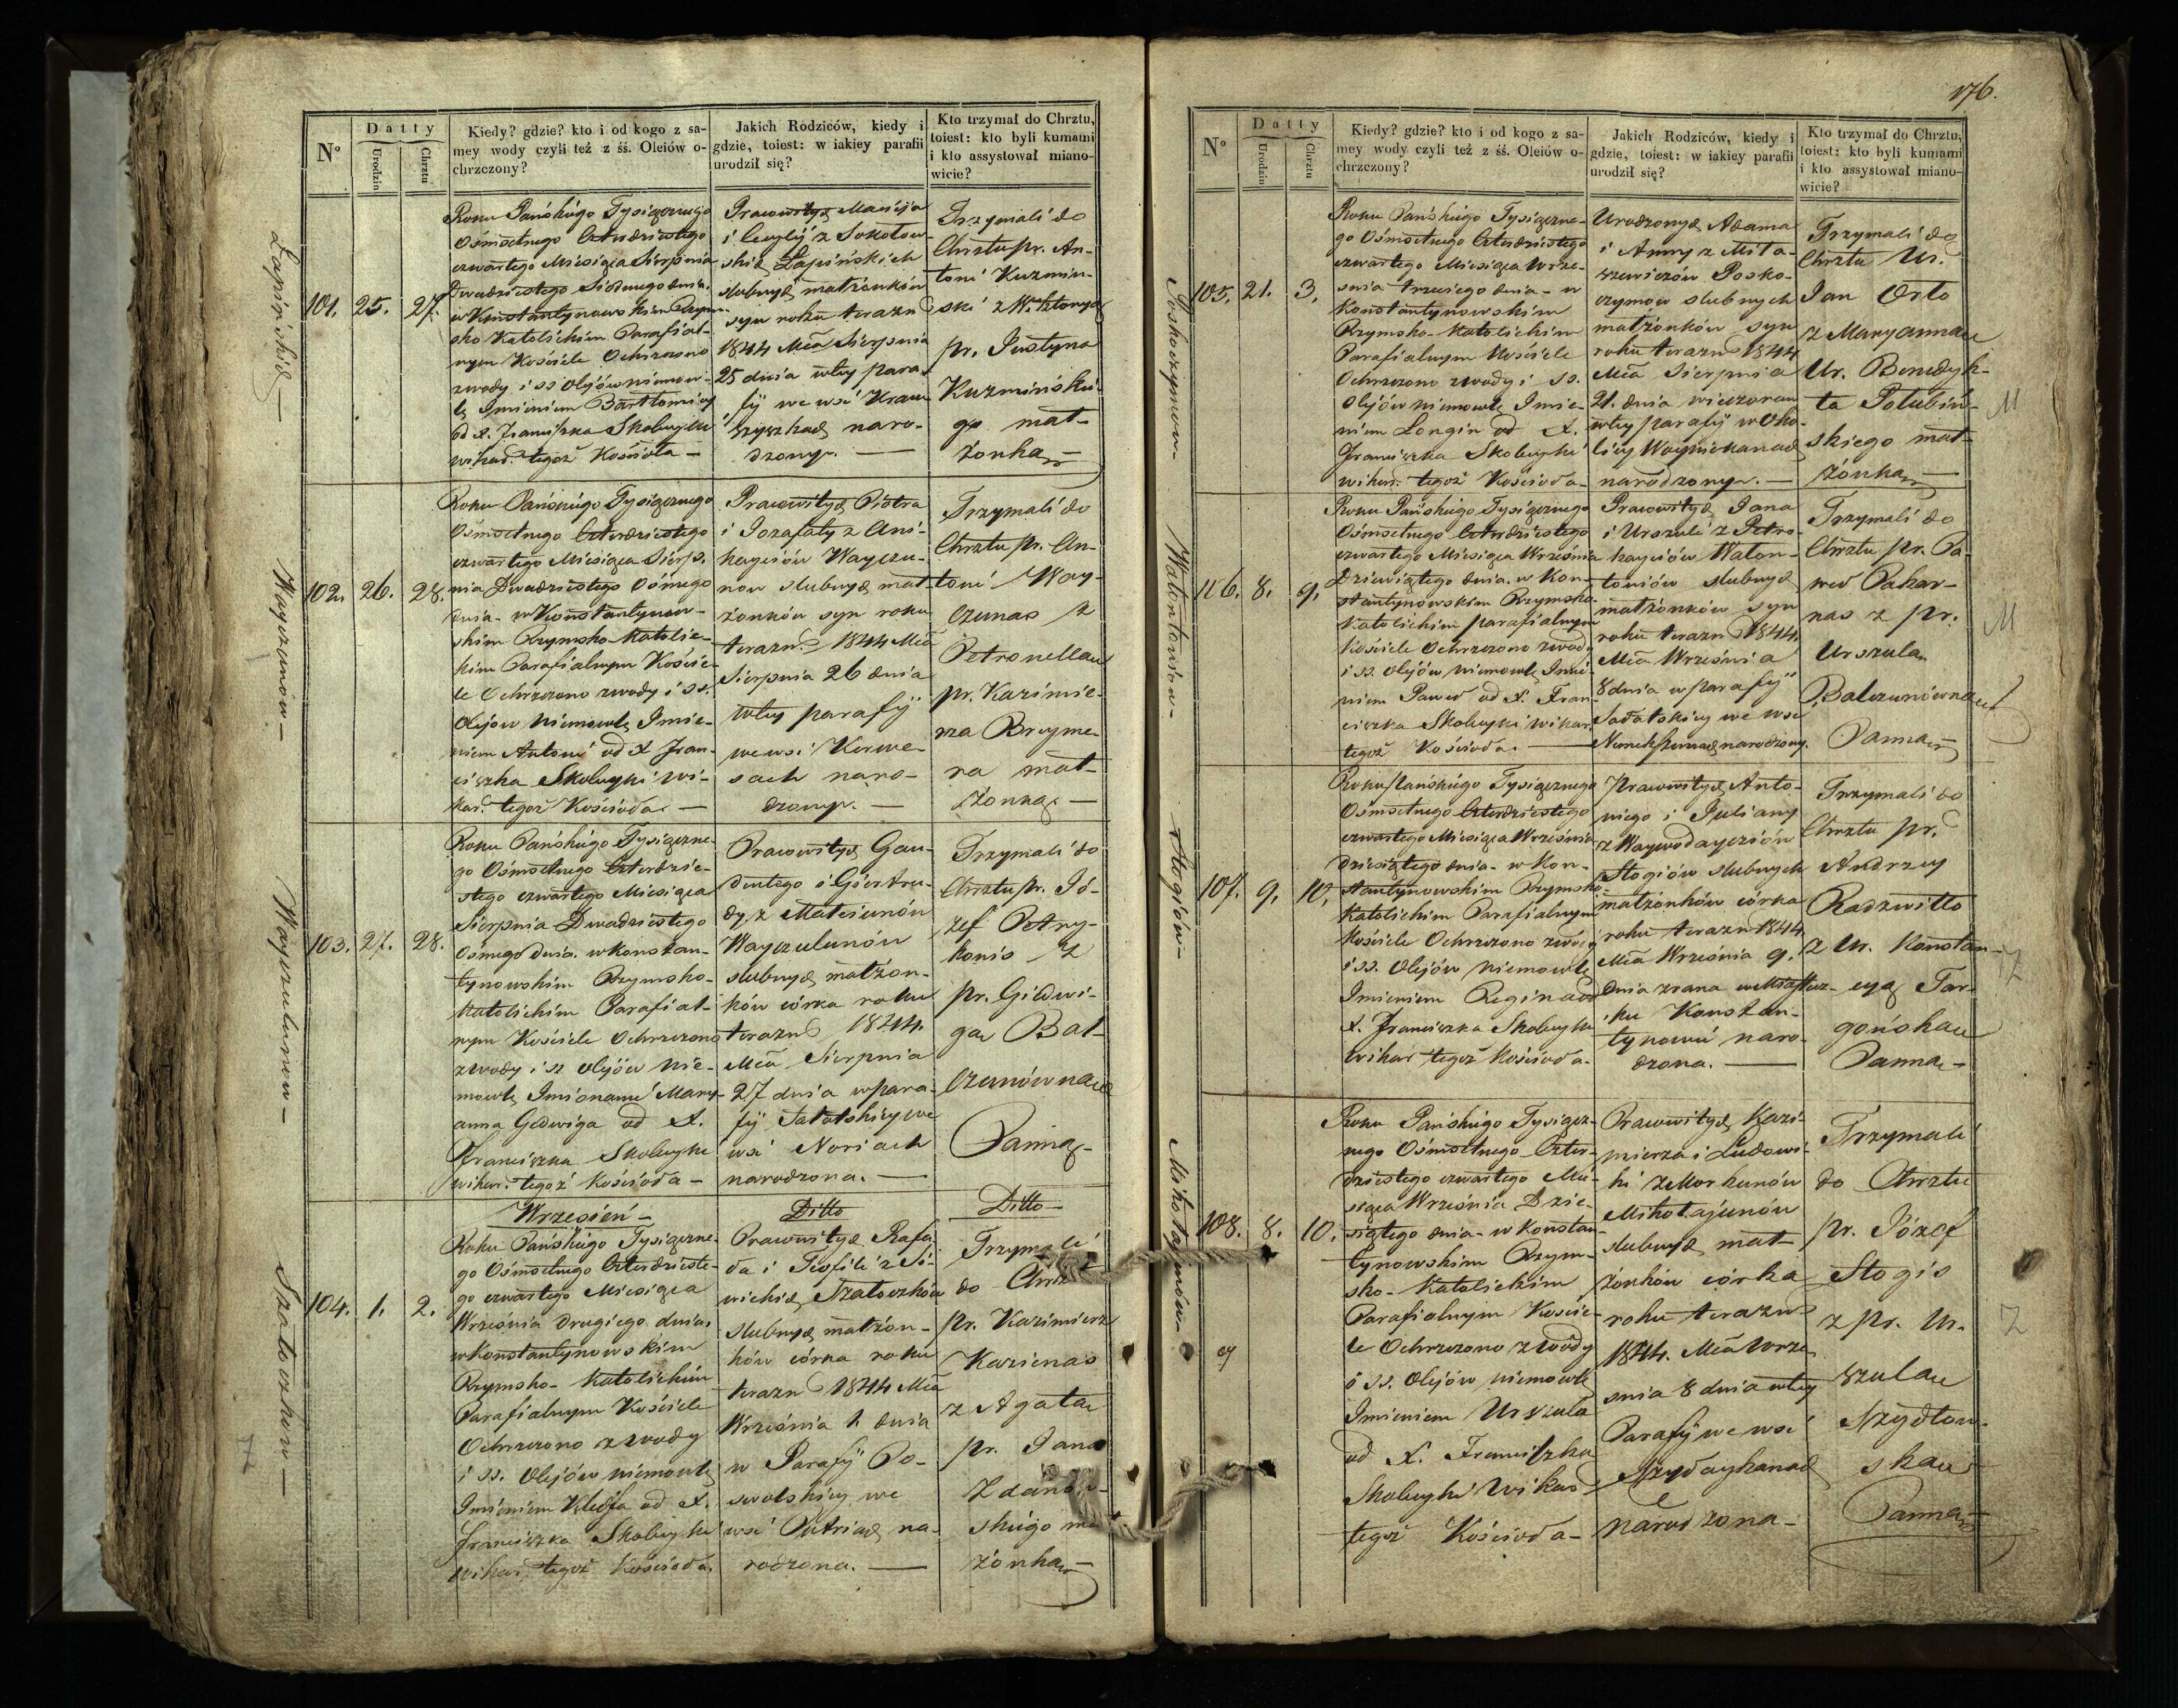 176.
Nº
Datty
Urodzin
Chrztu
Kiedy? gdzie? kto i od kogo z sa-
mey wody czyli też z śś. Oleiów o-
chrzczony?
Jakich Rodziców, kiedy i
gdzie, toiest: w iakiey parafii
urodził się?
Kto trzymał do Chrztu,
toiest: kto byli kumami
i kto assystował miano-
wicie?
Łapińskich —
101. 25. 27.
Roku Pańskiego Tysiącznego
Ośmsetnego Czterdziestego
czwartego Miesiąca Sierpnia
Dwadziestego Siódmego dnia.
w Konstantynowskim Rzym-
sko Katolickim Parafial-
nym Kościele Ochrzczono
z wody i ss Olejów niemow-
lę Imieniem Bartłomiej
od X. Franciszka Skobeyki
wikar. tegoż Kościoła —
Pracowitych Macieja
i Cecylij z Sokołow-
skich Łapińskich
slubnych małżonków
syn roku terazn.
1844 Mca Sierpnia
25 dnia w tey para-
fij we wsi
naro-
dzony. —
Trzymali do
Chrztu pr. An-
toni Kuzmin-
ski z W.
pr. Justyna
Kuzmińskie-
go mał-
żonką —
Wayczunow —
102. 26. 28.
Roku Pańskiego Tysiącznego
Ośmsetnego Czterdziestego
czwartego Miesiąca Sierp-
nia Dwadziestego Ośmego
dnia. w Konstantynow-
skim Rzymsko-Katolic-
kim Parafialnym Koście-
le Ochrzczono z wody i ss.
Olejow niemowlę Imie-
niem Antoni od X Fran-
ciszka Skobeyki wi-
kar. tegoż Kościoła —
Pracowitych Piotra
i Jozafaty z Ani-
kayciów Wayczu-
now slubnych mał-
żonków syn roku
terazn. 1844 Mca
Sierpnia 26 dnia
w tey parafij
we wsi Kerwe-
sach naro-
dzony. —
Trzymali do
Chrztu pr. An-
toni Way-
czunas z
Petronellą
pr. Kazimie-
rza Brzyme-
ra mał-
żonką —
Wayczulunow —
103. 27. 28.
Roku Pańskiego Tysiączne-
go Ośmsetnego Czterdzie-
stego czwartego Miesiąca
Sierpnia Dwadziestego
Ósmego dnia. w Konstan-
tynowskim Rzymsko-
Katolickim Parafial-
nym Kościele Ochrzczono
z wody i ss olejów nie-
mowlę Imionami Mary-
anna Gedwiga od X.
Franciszka Skobeyki
wikar. tegoż Kościoła —
Pracowitych Gau-
dentego i Giertru-
dy z Mateiunów
Wayczulunów
slubnych małżon-
ków córka roku
terazn 1844.
Mca Sierpnia
27 dnia w para-
fij Sałatskiey we
wsi Noriach
narodzona. —
Trzymali do
Chrztu pr. Jó-
zef Petry-
konis z
pr. Giedwi-
gą Bal-
czunówną
Panną —
Szatoszkow —
Wrzesień —
Ditto
Ditto —
104. 1. 2.
Roku Pańskiego Tysiączne-
go Ośmsetnego Czterdzieste-
go czwartego Miesiąca
Września drugiego dnia.
w Konstantynowskim
Rzymsko-Katolickim
Parafialnym Kościele
Ochrzczono z wody
i ss. Olejów niemowlę
Imieniem od X.
Franciszka Skobeyki
wikar. tegoż Kościoła.
Pracowitych Rafa-
ła i Teofili z Si-
wickich Szatoszków
slubnych małżon-
ków córka roku
terazn 1844 Mca
Września 1 dnia
w Parafij Po-
swolskiey we
wsi Putriach na-
rodzona. —
Trzymali
do Chrztu
pr. Kazimierz
Kazienas
z Agatą
pr. Jana
Zdanow-
skiego ma
żonką —
7
Nº
Datty
Urodzin
Chrztu
Kiedy? gdzie? kto i od kogo z sa-
mey wody czyli też z śś. Oleiów o-
chrzczony?
Jakich Rodziców, kiedy i
gdzie, toiest: w iakiey parafii
urodził się?
Kto trzymał do Chrztu,
toiest: kto byli kumami
i kto assystował miano-
wicie?
Poskoczymow —
105. 21. 3.
Roku Pańskiego Tysiączne-
go Ośmsetnego Czterdziestego
czwartego Miesiąca Wrze-
snia trzeciego dnia - w
Konstantynowskim
Rzymsko-Katolickim
Parafialnym Kościele
Ochrzczono z wody i ss.
Olejów niemowlę Imie-
niem Longin od X.
Franciszka Skobeyki
wikar. tegoż Kościoła —
Urodzonych Adama
i Anny z Mita-
szewiczów Posko-
czymow slubnych
małżonków syn
roku terazn 1844
Mca Sierpnia
21. dnia wieczorem
w tey parafij w Oko-
licy
narodzony. —
Trzymali do
Chrztu Ur.
Jan Osto
z Maryanną
Ur. Benedyk-
ta Połubiń-
skiego mał-
żonką —
M
Walontowiow —
106. 8. 9.
Roku Pańskiego Tysiącznego
Ośmsetnego Czterdziestego
czwartego Miesiąca Września
Dziewiątego dnia. w Kon-
stantynowskim Rzymsko
Katolickim parafialnym
Kościele Ochrzczono z wody
i ss. Olejów niemowlę Imie-
niem Paweł od X. Fran-
ciszka Skobeyki wikar.
tegoż Kościoła. —
Pracowitych Jana
i Urszuli z Petro-
kayciów Walon-
towiów slubnych
małżonków syn
roku terazn 1844.
Mca Września
8 dnia w parafij
Sałatskiey we wsi
narodzony.
Trzymali do
Chrztu pr. Pa-
weł Pakar-
nas z pr.
Urszulą
Balczunówną
Panną
M
Stogiow —
107. 9. 10.
Roku Pańskiego Tysiącznego
Ośmsetnego Czterdziestego
czwartego Miesiąca Września
dziesiątego dnia - w Kon-
stantynowskim Rzymsko-
Katolickim Parafialnym
Kościele Ochrzczono z wody
i ss. Olejów niemowlę
Imieniem Regina od
X. Franciszka Skobeyki
wikar tegoż Kościoła.
Pracowitych Anto-
niego i Juliany
z Waywodayciów
Stogiów slubnych
małżonków córka
roku terazn 1844.
Mca Września 9.
dnia zrana w Miastecz-
ku Konstan-
tynowie naro-
dzona. —
Trzymali do
Chrztu pr.
Andrzey
Radzwiłło
z Ur. Konstan-
cyą Tar-
gońską
Panną —
Z
Mikołajunów —
108. 8. 10.
Roku Pańskiego Tysiącz-
nego Ośmsetnego Czter-
dziestego czwartego Mie-
siąca Września Dzie-
siątego dnia - w Konstan-
tynowskim Rzym-
sko-Katolickim
Parafialnym Koście-
le Ochrzczono z wody
i ss. Olejów niemowlę
Imieniem Urszula
od X. Franciszka
Skobeyki Wikar
tegoż Kościoła —
Pracowitych Kazi-
mierza i Ludowi-
ki z Morkunów
Mikołajunów
slubnych mał-
żonków córka
roku terazn
1844. Mca Wrze-
snia 8 dnia w tey
Parafij we wsi
narodzona —
Trzymali
do Chrztu
pr. Józef
Stogis
z pr. Ur-
szulą
Szydłow-
ską
Panną
Z